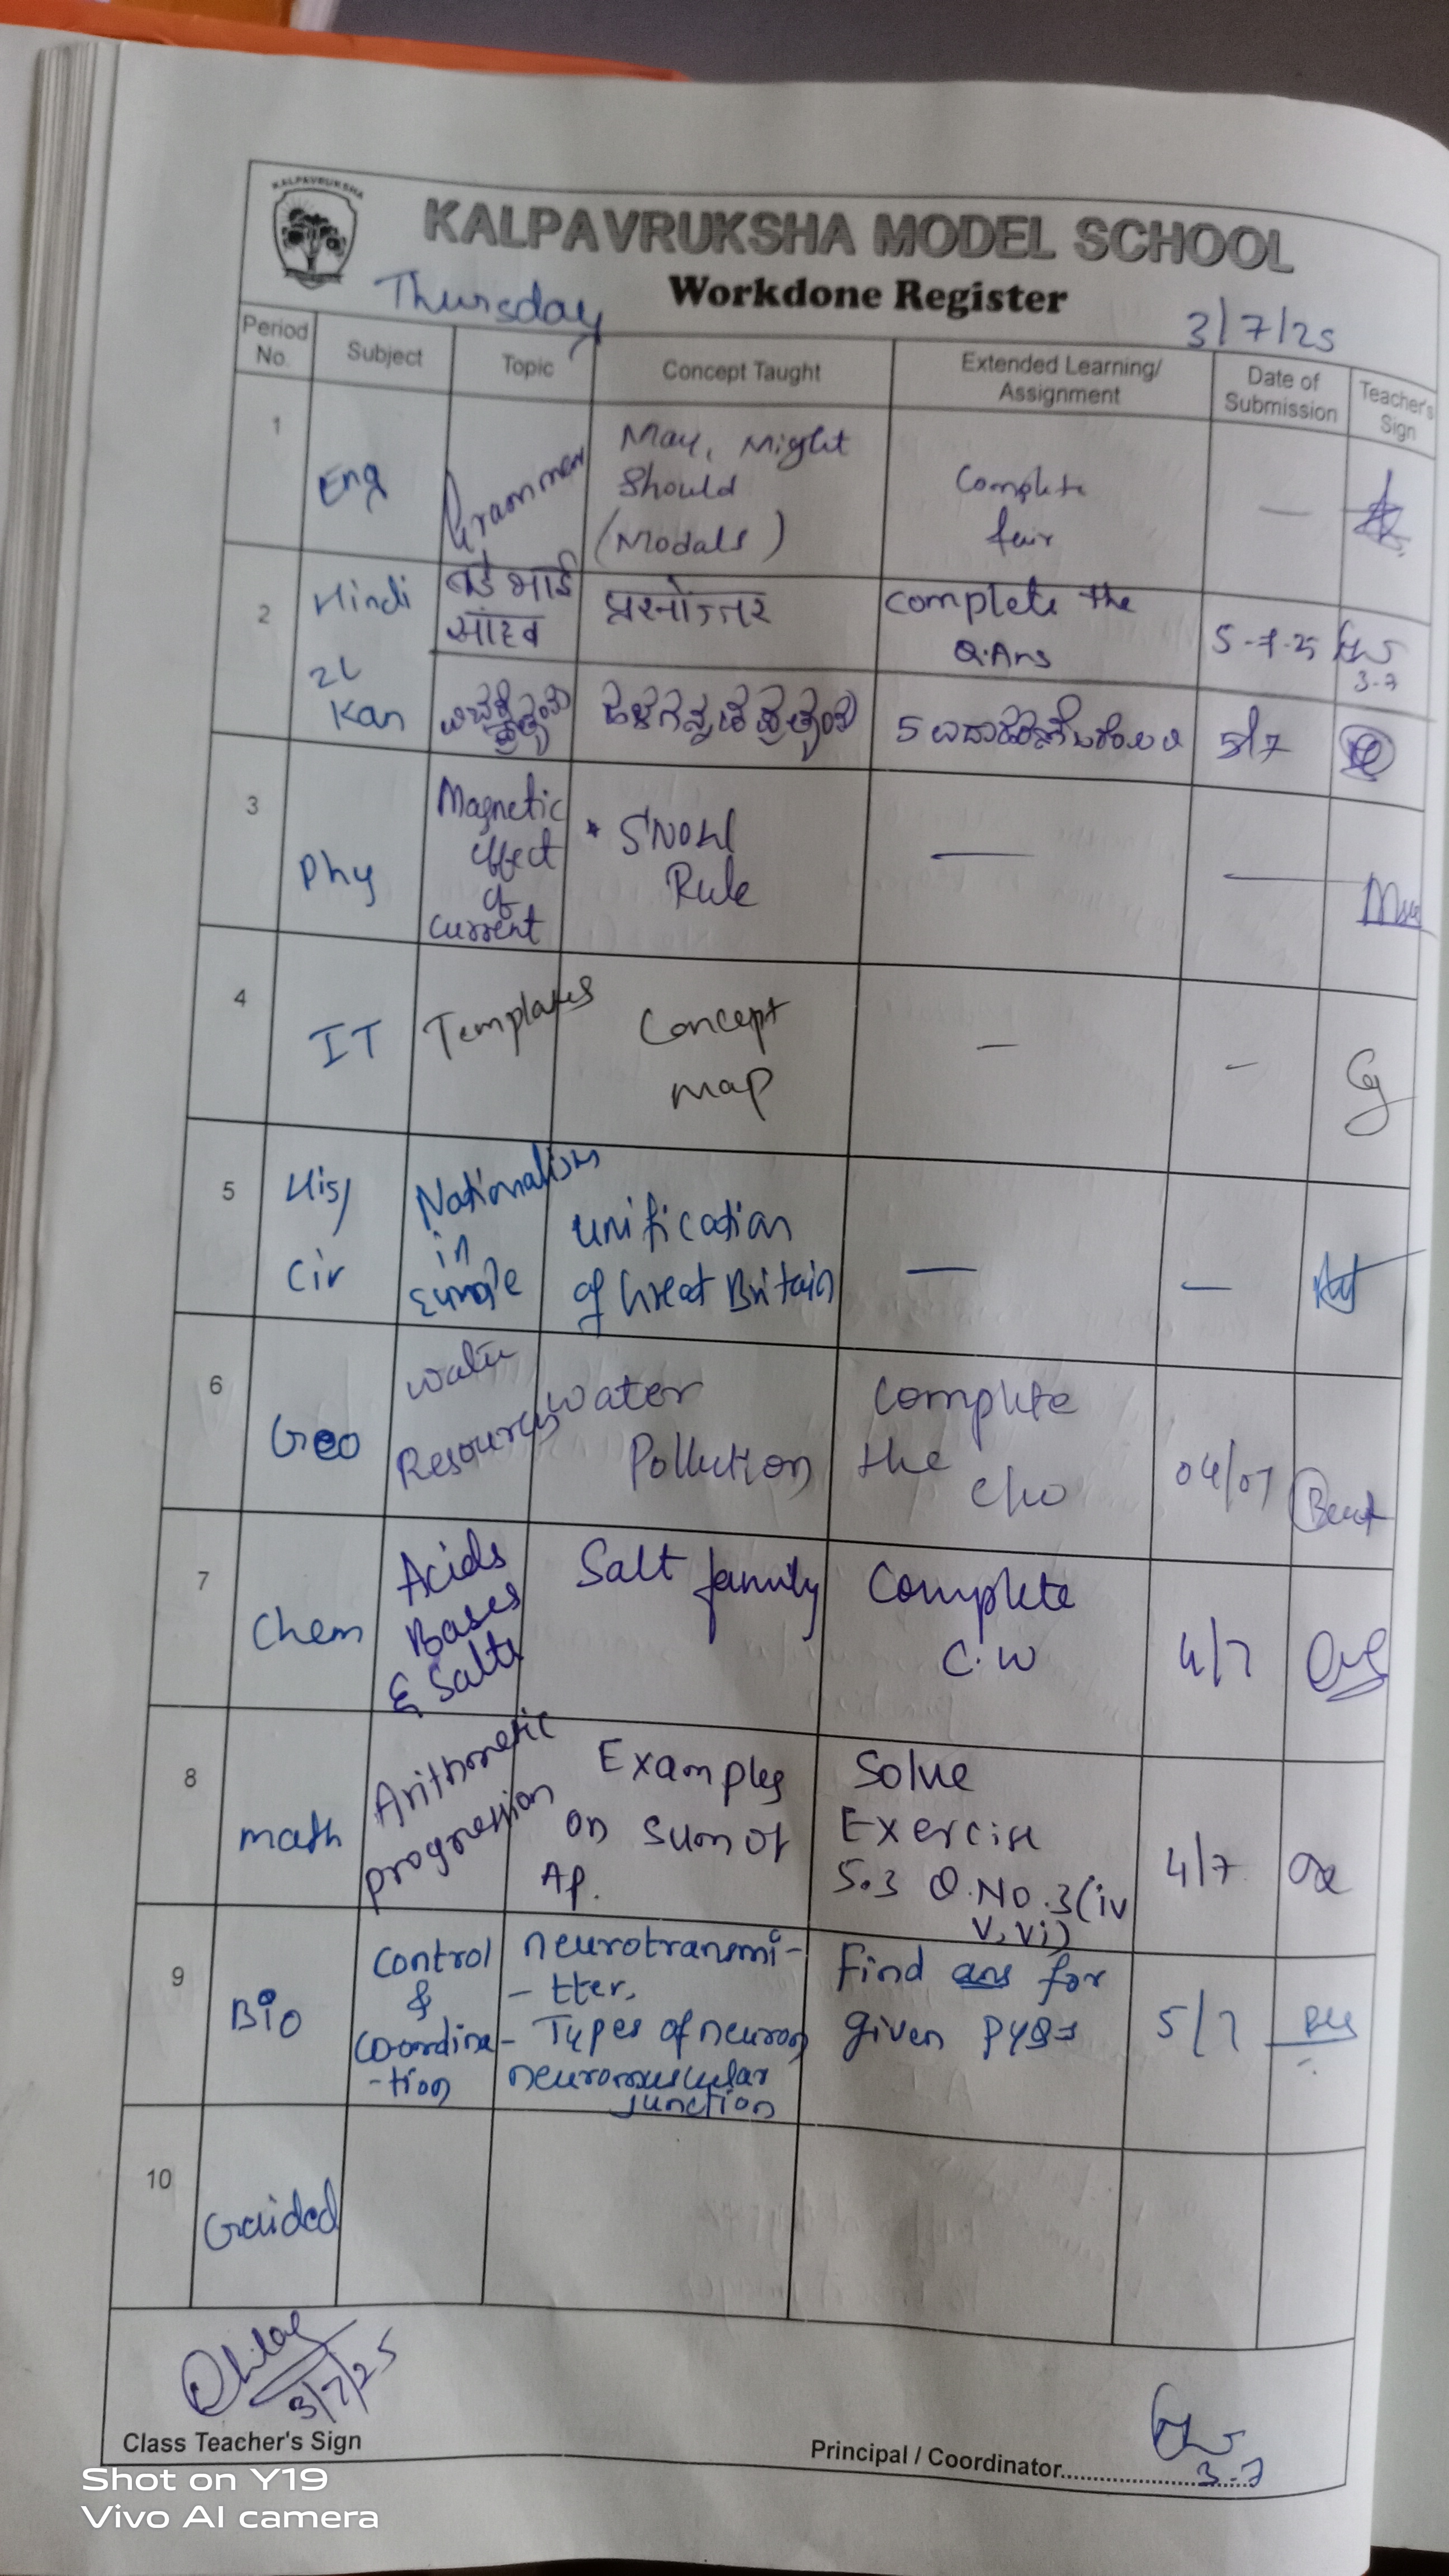 KALPAVRUKSHA
KALPAVRUKSHA MODEL SCHOOL
Workdone Register
Thursday
3/7/25
Period No. Subject Topic Concept Taught Extended Learning/ Assignment Date of Submission Teacher's Sign
1 Eng Grammar May, Might Should (Modals) Complete fair —
2 Hindi बडे भाई साहब प्रश्नोत्तर complete the Q.Ans 5-7-25
3.7
2L Kan 5 5/7
3 Phy Magnetic effect of current * SNOW Rule — —
4 IT Templates Concept map — —
5 His/ Civ Nationalism in Europe unification of Great Britain — —
6 Geo Water Resources Water Pollution Complete the c/w 04/07
7 Chem Acids Bases & Salts Salt family Complete C.W 4/7
8 math Arithmetic progression Examples on sum of Ap. Solve Exercise 5.3 Q.No.3(iv v, vi) 4/7
9 Bio Control & Coordina -tion neurotransmi- - tter, - Types of neuron neuromuscular junction Find ans for given PYQs 5/7
10 Guided
3/7/25
Class Teacher's Sign
Principal / Coordinator
3-7
Shot on Y19
Vivo AI camera